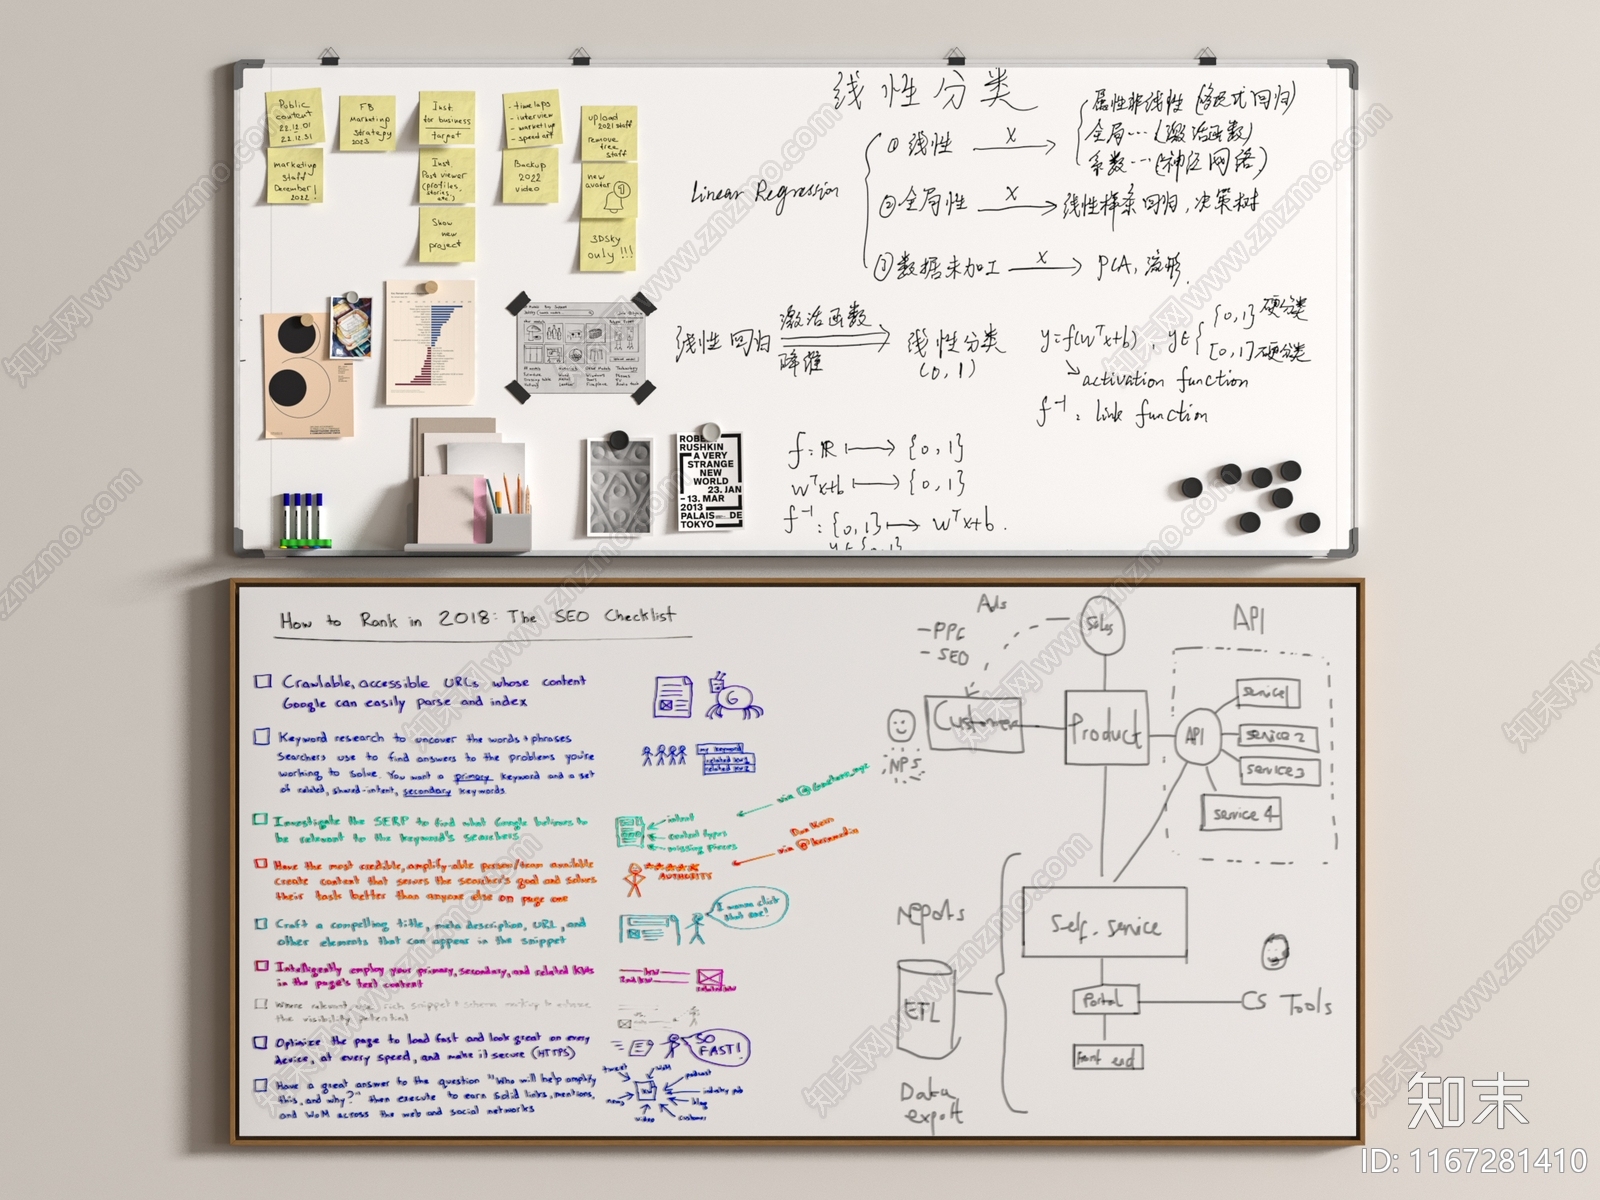 Public
content
22.12.01
22.12.31
FB
Marketing
Strategy
2023
Inst.
for business
target
- timelaps
- interview
- marketing
- speed art
upload
2021 staff
remove
free
staff
marketing
staff
December!
2022
Inst.
Post viewer
(profiles,
stories,
etc.)
Backup
2022
video
new
avatar
Show
new
project
3DSky
only!!!
ROBE
RUSHKIN
A VERY
STRANGE
NEW
WORLD
23. JAN
- 13. MAR
2013
PALAIS DE
TOKYO
线性分类
Linear Regression
① 线性 x
属性非线性
全局…(激活函数)
系数…(神经网络)
② 全局性 x 线性样条回归,决策树
③ 数据未加工 x PCA, 流形.
线性回归 激活函数 降维 线性分类
(0,1)
y=f(wᵀx+b), y∈{ {0,1} 硬分类
[0,1] 硬分类
↘ activation function
f⁻¹: link function
f: ℝ ⟼ {0,1}
wᵀx+b ⟼ {0,1}
f⁻¹: {0,1} ⟼ wᵀx+b.
How to Rank in 2018: The SEO Checklist
Crawlable, accessible URLs whose content
Google can easily parse and index
G
Keyword research to uncover the words + phrases
searchers use to find answers to the problems you're
working to solve. You want a primary keyword and a set
of related, shared-intent, secondary keywords.
my keyword
related kw1
related kw2
Investigate the SERP to find what Google believes to
be relevant to the keyword's searchers
intent
content types
missing pieces
Have the most credible, amplify-able person/team available
create content that serves the searcher's goal and solves
their task better than anyone else on page one
AUTHORITY
via @kernmedia
Craft a compelling title, meta description, URL, and
other elements that can appear in the snippet
I wanna click
that one!
Intelligently employ your primary, secondary, and related KWs
in the page's text content
Where relevant, use rich snippet + schema markup to enhance
the visibility potential
Optimize the page to load fast and look great on every
device, at every speed, and make it secure (HTTPS)
SO
FAST!
Have a great answer to the question "Who will help amplify
this, and why?" then execute to earn solid links, mentions,
and WoM across the web and social networks
tweet
WoM
podcast
industry pub
blog
customer
video
news
Ads
- PPC
- SEO
Sales
API
Customer
Product
API
service1
service2
service3
service4
NPS
reports
ETL
Data
export
Self.service
Portal
Front end
CS Tools
知末
ID: 1167281410
知末网www.znzmo.com